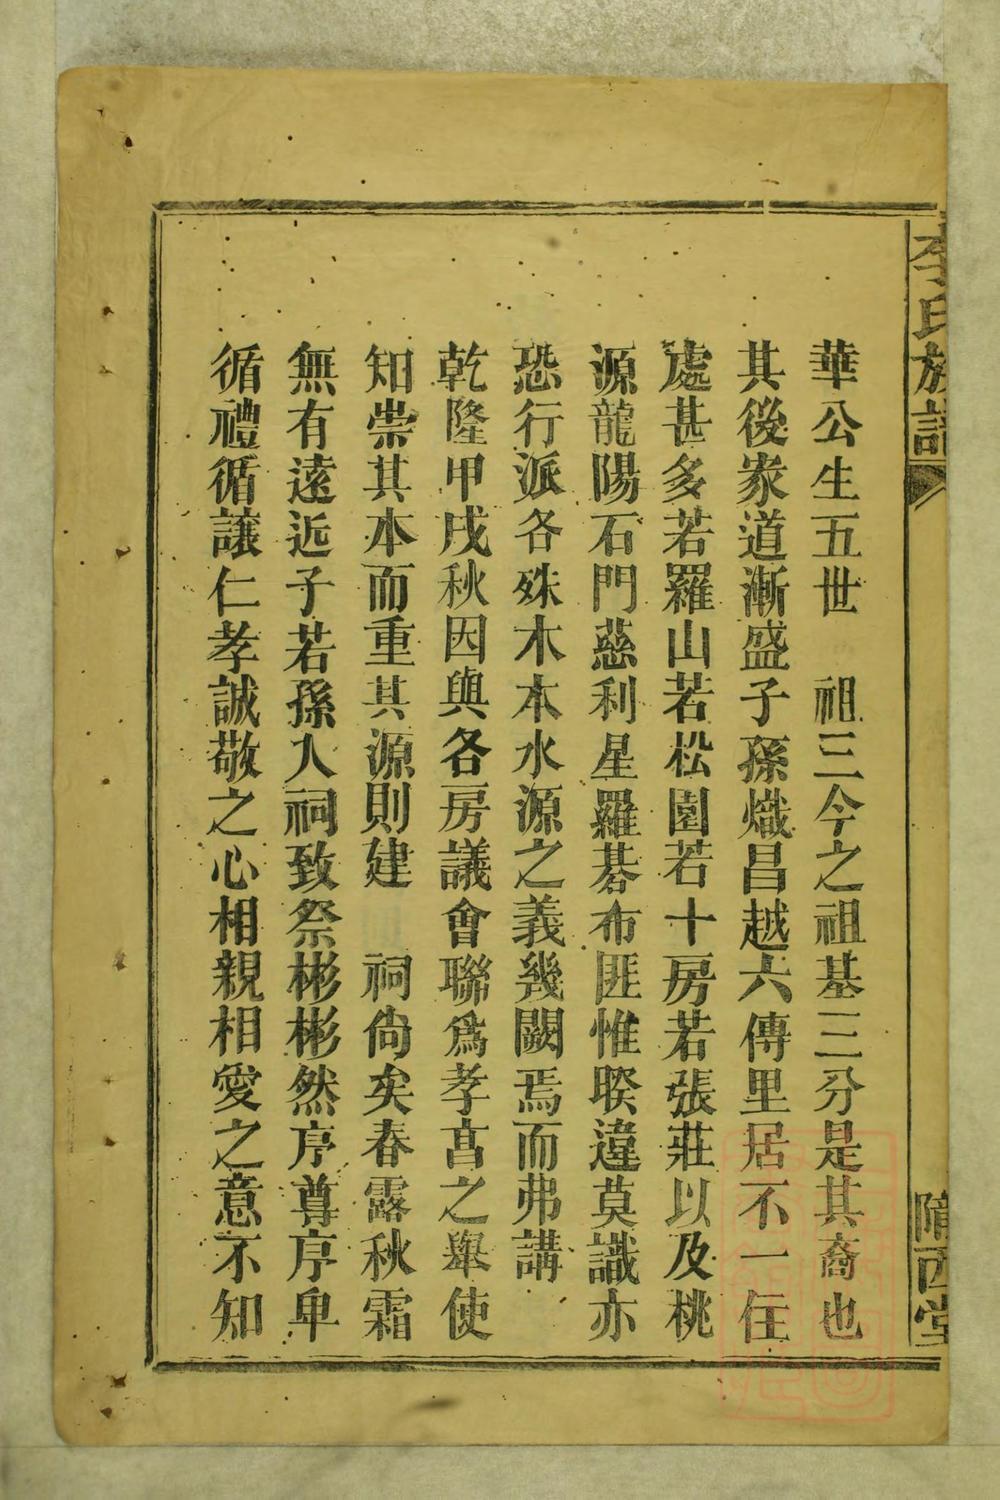 李氏族譜
隴西堂
華公生五世　祖三今之祖基三分是其裔也
其後家道漸盛子孫熾昌越六傳里居不一任
處甚多若羅山若松園若十房若張莊以及桃
源龍陽石門慈利星羅碁布匪惟暌違莫識亦
恐行派各殊木本水源之義幾闕焉而弗講
乾隆甲戌秋因與各房議會聯爲孝亯之舉使
知崇其本而重其源則建　祠尙矣春露秋霜
無有遠近子若孫入祠致祭彬彬然序尊序卑
循禮循讓仁孝誠敬之心相親相愛之意不知